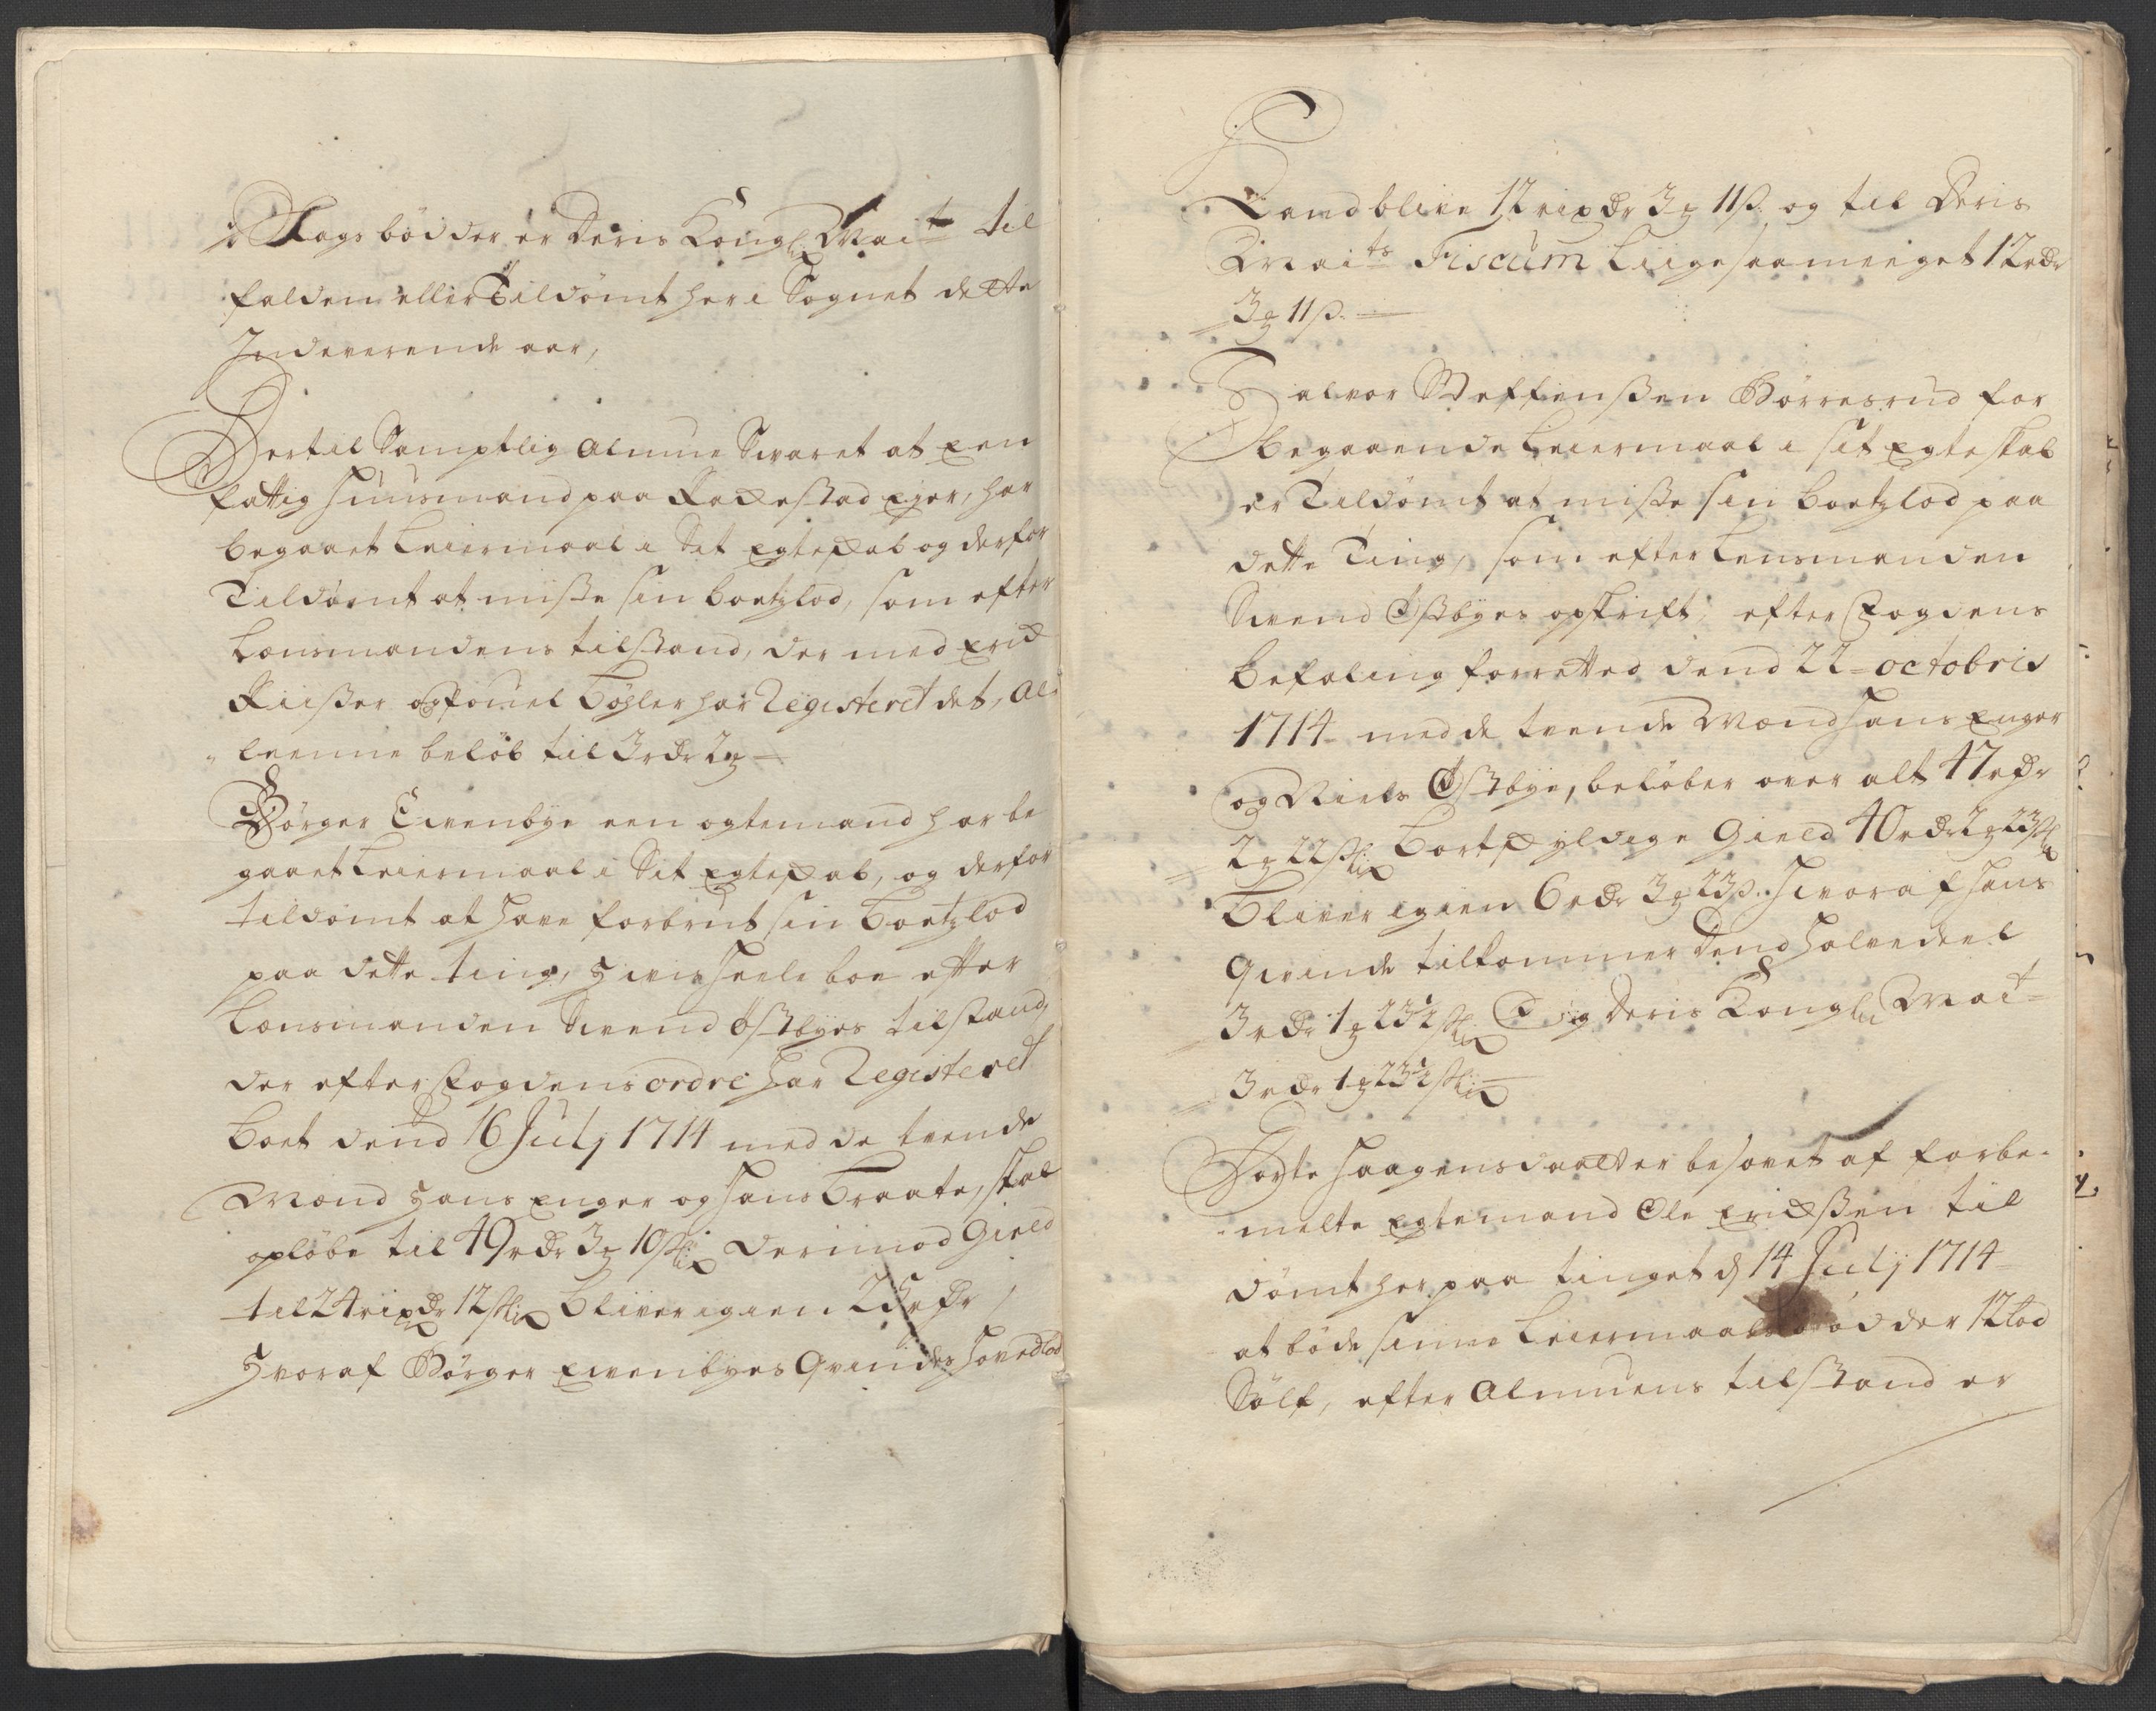 Sags bødder er Deris Kongl: Mait til
falden eller Tildømt her i Sognet dette
Indeverende aar,
Dertil Samptlig Almue Svaret at een
fattig Huusmand paa Eger, har
begaaet Leiermaal i Sit Egteskab og derfor
Tildømt at miste sin boetzlod, som efter
Lensmandens tilstand, der med Erich
og Pouel Bøhler har Registeret det, al„
„leenne beløb til 3 rdr 2 ₰ —
Børger Evenbye een egtemand har be
gaaet Leiermaal i Sit Egteskab, og derfor
tildømt at have forbrut sin boetzlod
paa dette ting, Hvis Heele boe efter
Lensmanden Svend Østbyes tilstand,
der efter Fogdens ordre har Registeret
Boet dend 16 Julj 1714 med de tvende
Mænd Hans Enger og Hans Braate, skal
opløbe til 49 rdr 3 ₰ 10 sk: derimod Gield
til 24 rixdr 12 sk: bliver igien 25 rdr /
Hvoraf Børger Evenbyes Qvindes Hovedlod
Kand blive 12 rixdr 3 ₰ 11 ß. og til Deris
Maits Fiscum Liige saa meeget 12 rdr
3 ₰ 11 ß. —
Halvor Steffenssen Børresrud for
begaaende Leiermaal i sit Egteskab
er Tildømt at miste sin boetzlod paa
dette Ting, som efter Lensmanden
Svend Østbyes opskrift, efter Fogdens
befaling forretted dend 22 octobris
1714 med de tvende Mænd Hans Enger
og Niels Østbye, beløber over alt 47 rdr
2 ₰ 22 sk: Bortskyldige Gield 40 rdr 2 ₰ 23 sk:
Bliver igien 6 rdr 3 ₰ 23 ß. Hvoraf Hans
Qvinde tilkommer Dend halvedeel
3 rdr 1 ₰ 23½ sk: Og Deris Kongl: Mait
3 rdr 1 ₰ 23½ sk:
Dorte Haagensdaatter besovet af forbe„
„melte Egtemand Ole Erichssen til
dømt her paa tinget d 14 Julj 1714
at bøde sinne Leiermaals bødder 12 Lod
Sølf, efter Almuens tilstand er